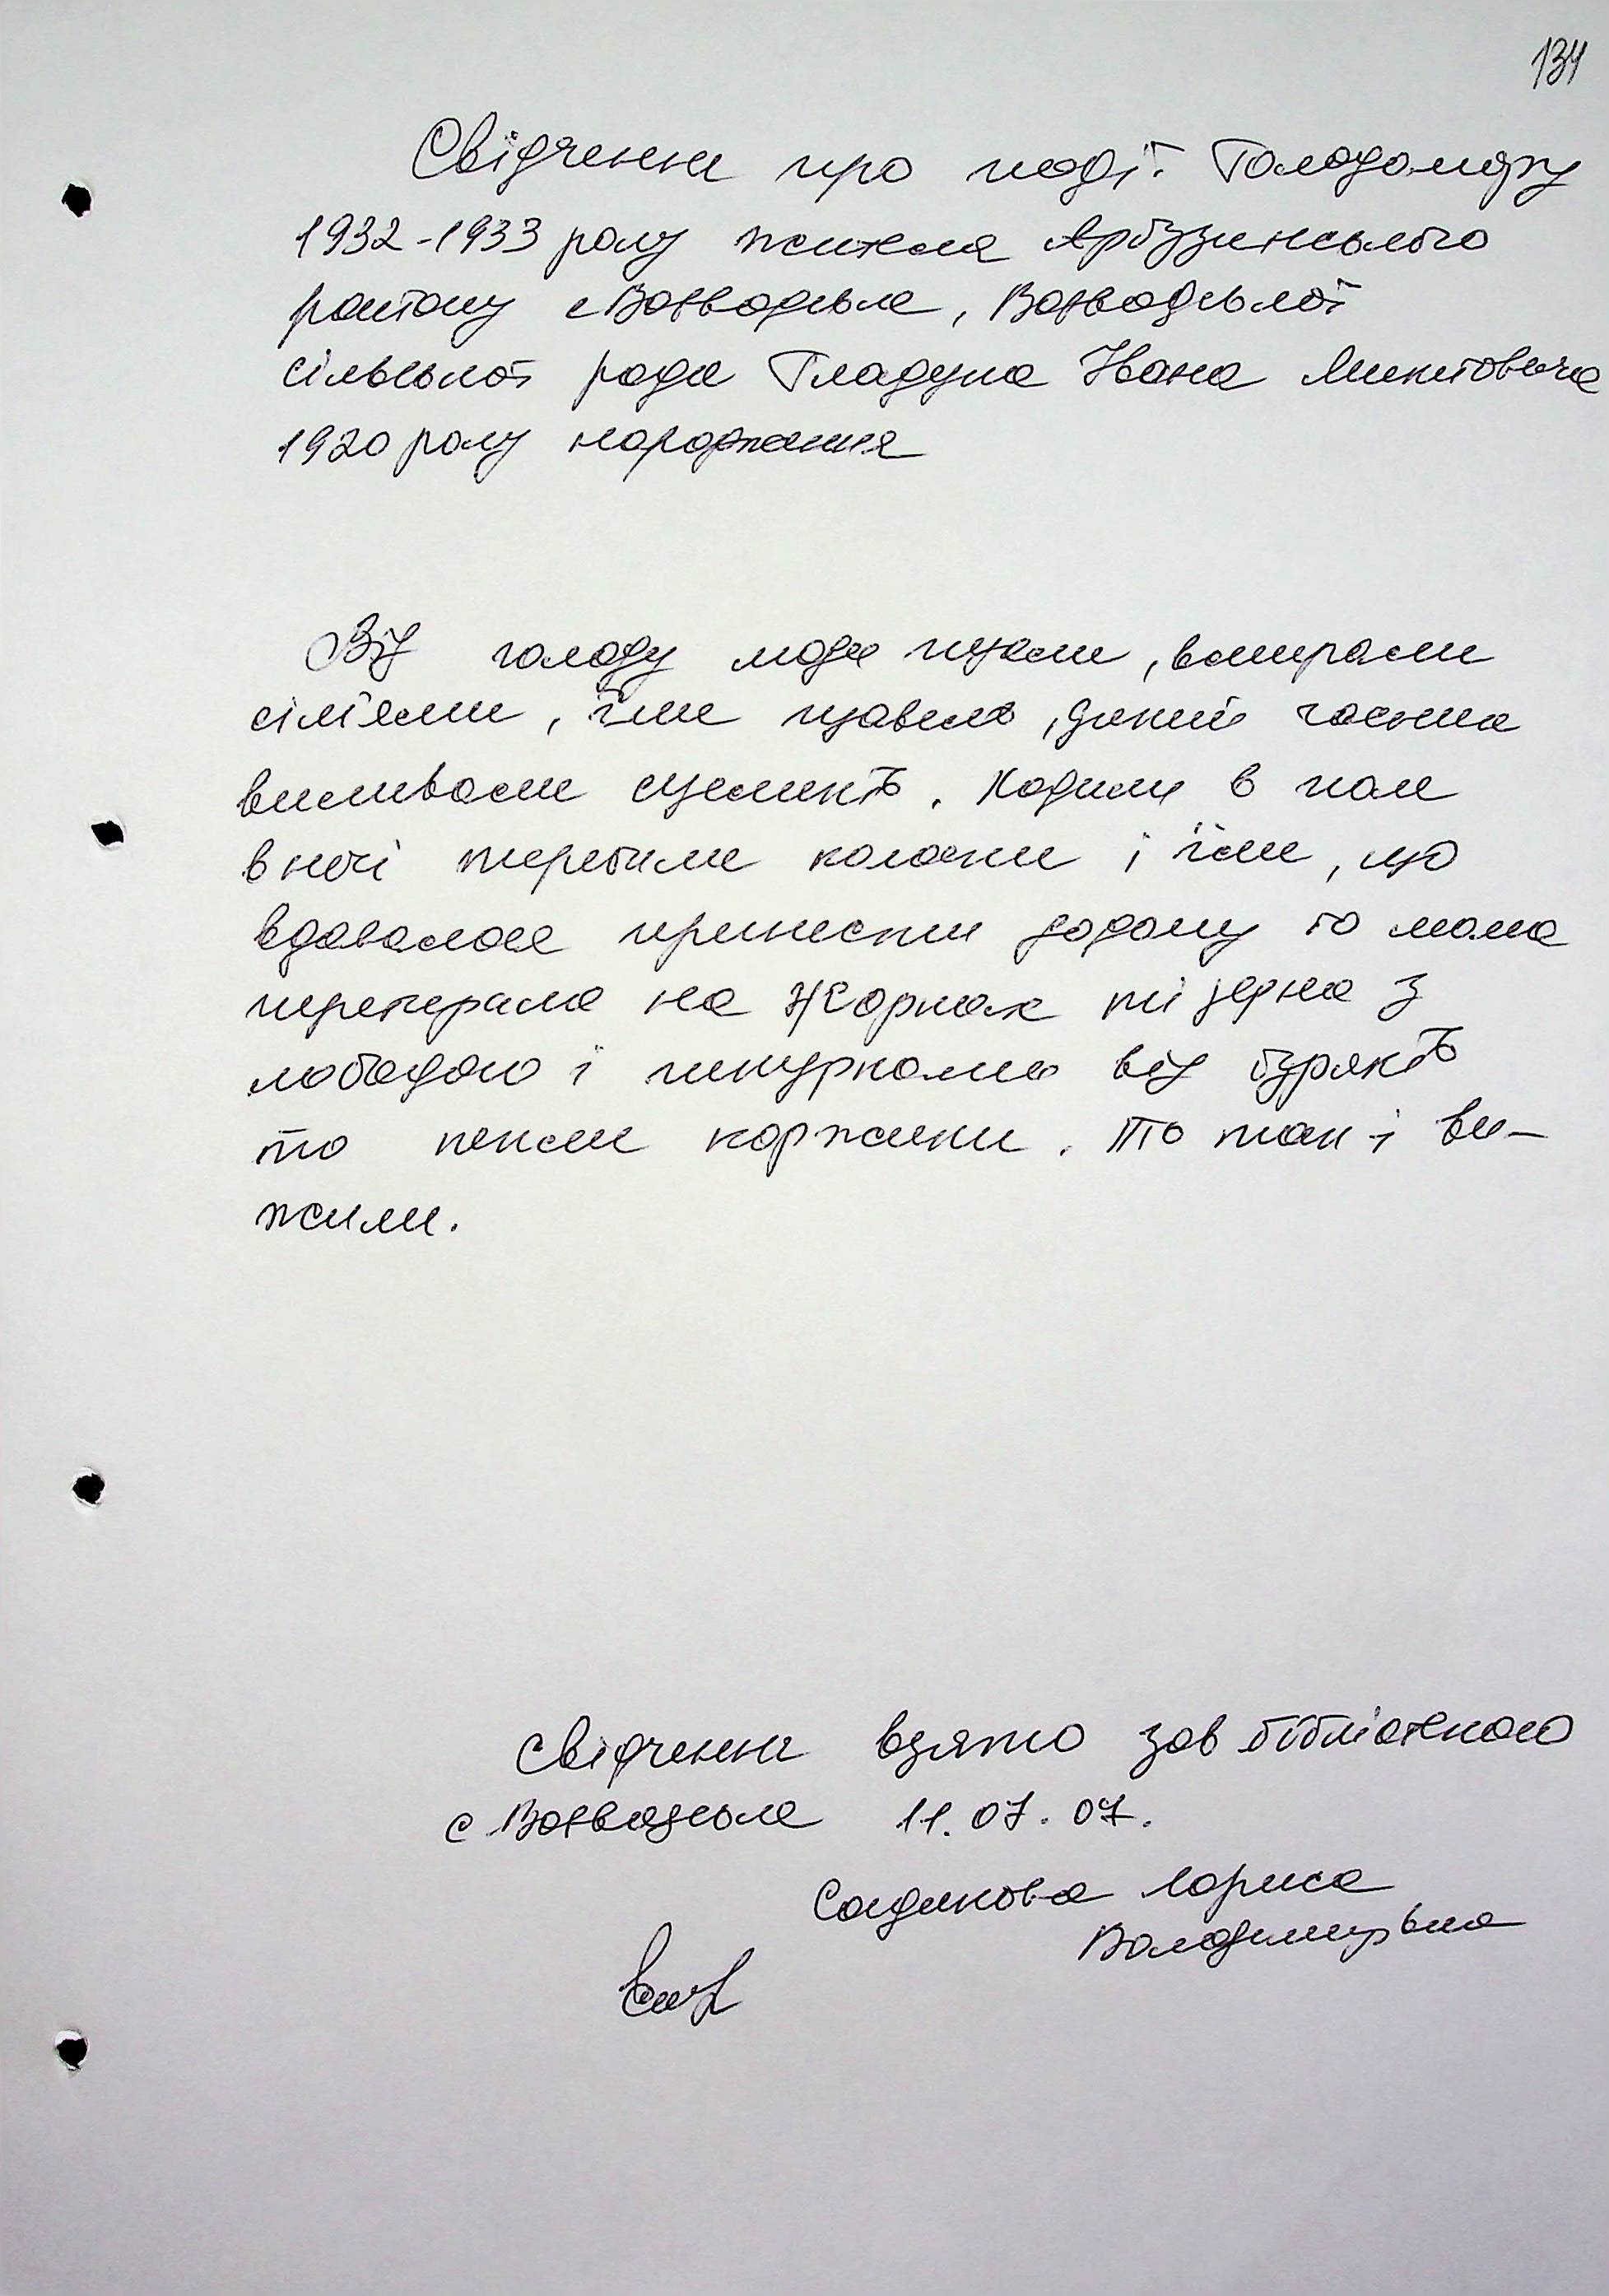 134
Свідчення про події Голодомору
1932-1933 року жителя Арбузинського
району с Воєводське, Воєводської
сільської ради Гладуна Івана Микитовича
1920 року народження
Від голоду люди пухли, вмирали
сім'ями, їли щавель, дикий часник
виливали сусликів. Ходили в поле
вночі теребили колоски і їли, що
вдавалося принести додому то мама
перетирала на жорнах ті зерна з
лободою і шкурками від буряків
то пекли коржики. То так і ви-
жили.
Свідчення взято зав бібліотекою
с Воєводське 11.07.07.
Садикова Лариса
Володимирівна